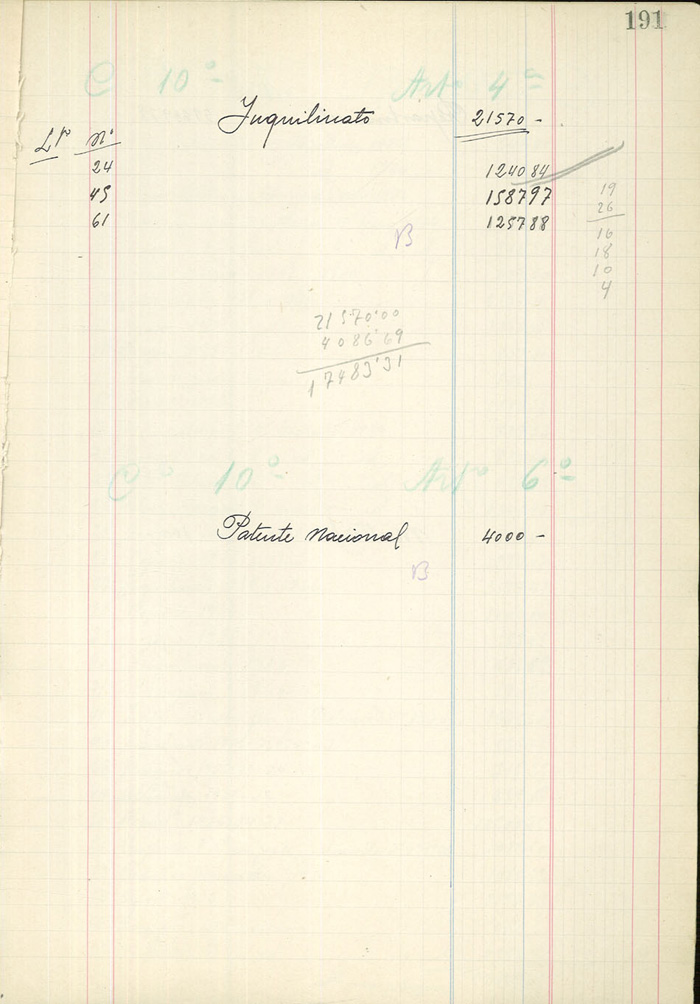 191
C 10º Artº 4º
Inquilinato 21570-
Lº Nº
24 124084
45 158797 19
61 125788 26
B 16
18
10
4
21570'00
4086'69
17483'31
Cº 10º Artº 6º
Patente Nacional 4000-
B